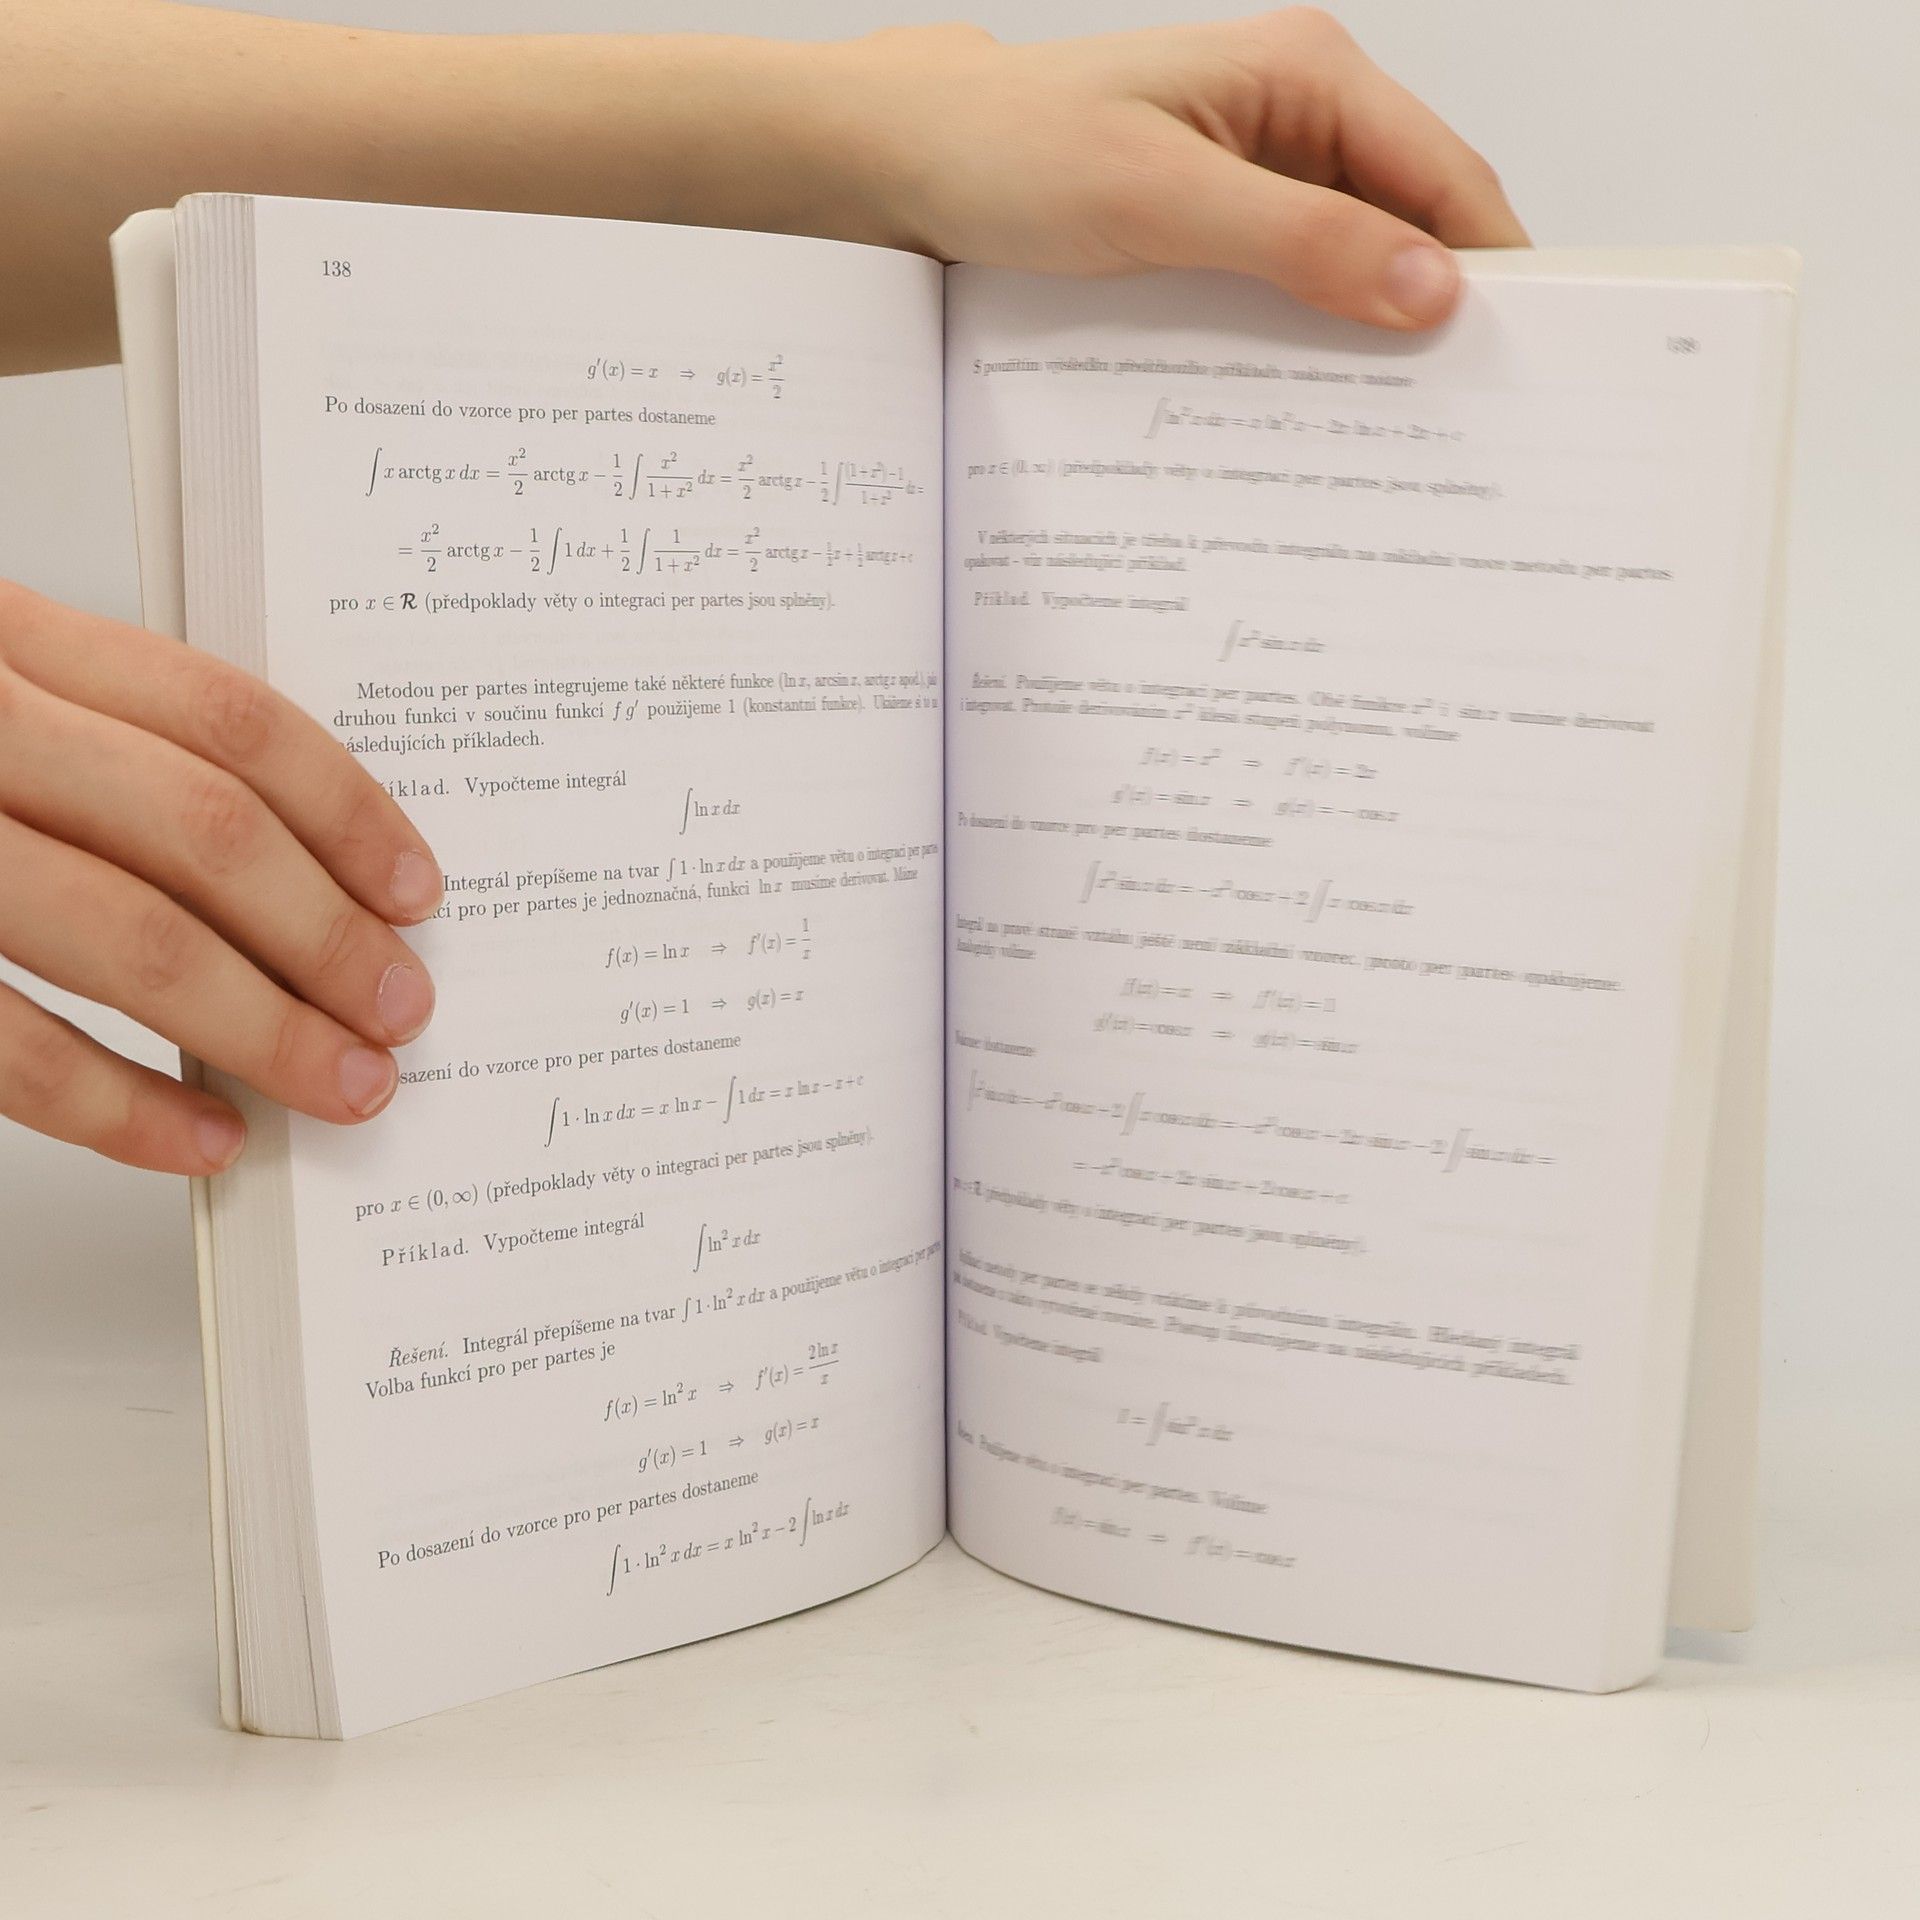 138
g′(x) = x ⇒ g(x) = x²/2
Po dosazení do vzorce pro per partes dostaneme
∫ x arctg x dx = x²/2 arctg x − 1/2 ∫ x²/(1 + x²) dx = x²/2 arctg x − 1/2 ∫ ((1+x²)−1)/(1+x²) dx =
= x²/2 arctg x − 1/2 ∫ 1 dx + 1/2 ∫ 1/(1 + x²) dx = x²/2 arctg x − 1/2 x + 1/2 arctg x + c
pro x ∈ R (předpoklady věty o integraci per partes jsou splněny).
Metodou per partes integrujeme také některé funkce (ln x, arcsin x, arctg x apod.), jako
druhou funkci v součinu funkcí f g′ použijeme 1 (konstantní funkce). Ukážeme si to na
následujících příkladech.
íklad. Vypočteme integrál
∫ ln x dx
Integrál přepíšeme na tvar ∫ 1 · ln x dx a použijeme větu o integraci per partes
cí pro per partes je jednoznačná, funkci ln x musíme derivovat. Máme
f(x) = ln x ⇒ f′(x) = 1/x
g′(x) = 1 ⇒ g(x) = x
sazení do vzorce pro per partes dostaneme
∫ 1 · ln x dx = x ln x − ∫ 1 dx = x ln x − x + c
pro x ∈ (0, ∞) (předpoklady věty o integraci per partes jsou splněny).
Příklad. Vypočteme integrál
∫ ln² x dx
Řešení. Integrál přepíšeme na tvar ∫ 1 · ln² x dx a použijeme větu o integraci per partes
Volba funkcí pro per partes je
f(x) = ln² x ⇒ f′(x) = 2 ln x/x
g′(x) = 1 ⇒ g(x) = x
Po dosazení do vzorce pro per partes dostaneme
∫ 1 · ln² x dx = x ln² x − 2 ∫ ln x dx
S použitím výsledku předchozího příkladu nakonec máme
∫ ln² x dx = x ln² x − 2x ln x + 2x + c
pro x ∈ (0, ∞) (předpoklady věty o integraci per partes jsou splněny).
V některých situacích je třeba k převodu integrálu na základní vzorce metodu per partes
opakovat - viz následující příklad.
Příklad. Vypočteme integrál
∫ x² sin x dx
Řešení. Použijeme větu o integraci per partes. Obě funkce x² i sin x umíme derivovat
i integrovat. Protože derivováním x² klesá stupeň polynomu, volíme
f(x) = x² ⇒ f′(x) = 2x
g′(x) = sin x ⇒ g(x) = − cos x
Po dosazení do vzorce pro per partes dostaneme
∫ x² sin x dx = −x² cos x + 2 ∫ x cos x dx
Integrál na pravé straně vztahu ještě není základní vzorec, proto per partes opakujeme.
volíme
f(x) = x ⇒ f′(x) = 1
g′(x) = cos x ⇒ g(x) = sin x
dostaneme
∫ x² sin x dx = −x² cos x + 2 ∫ x cos x dx = −x² cos x + 2x sin x − 2 ∫ sin x dx =
= −x² cos x + 2x sin x + 2 cos x + c
pro x ∈ R (předpoklady věty o integraci per partes jsou splněny).
metody per partes se někdy vrátíme k původnímu integrálu. Hledaný integrál
pak dostaneme z takto vytvořené rovnice. Postup ilustrujeme na následujících příkladech.
Příklad. Vypočteme integrál
I = ∫ sin² x dx
Řešení. Použijeme větu o integraci per partes. Volíme
f(x) = sin x ⇒ f′(x) = cos x